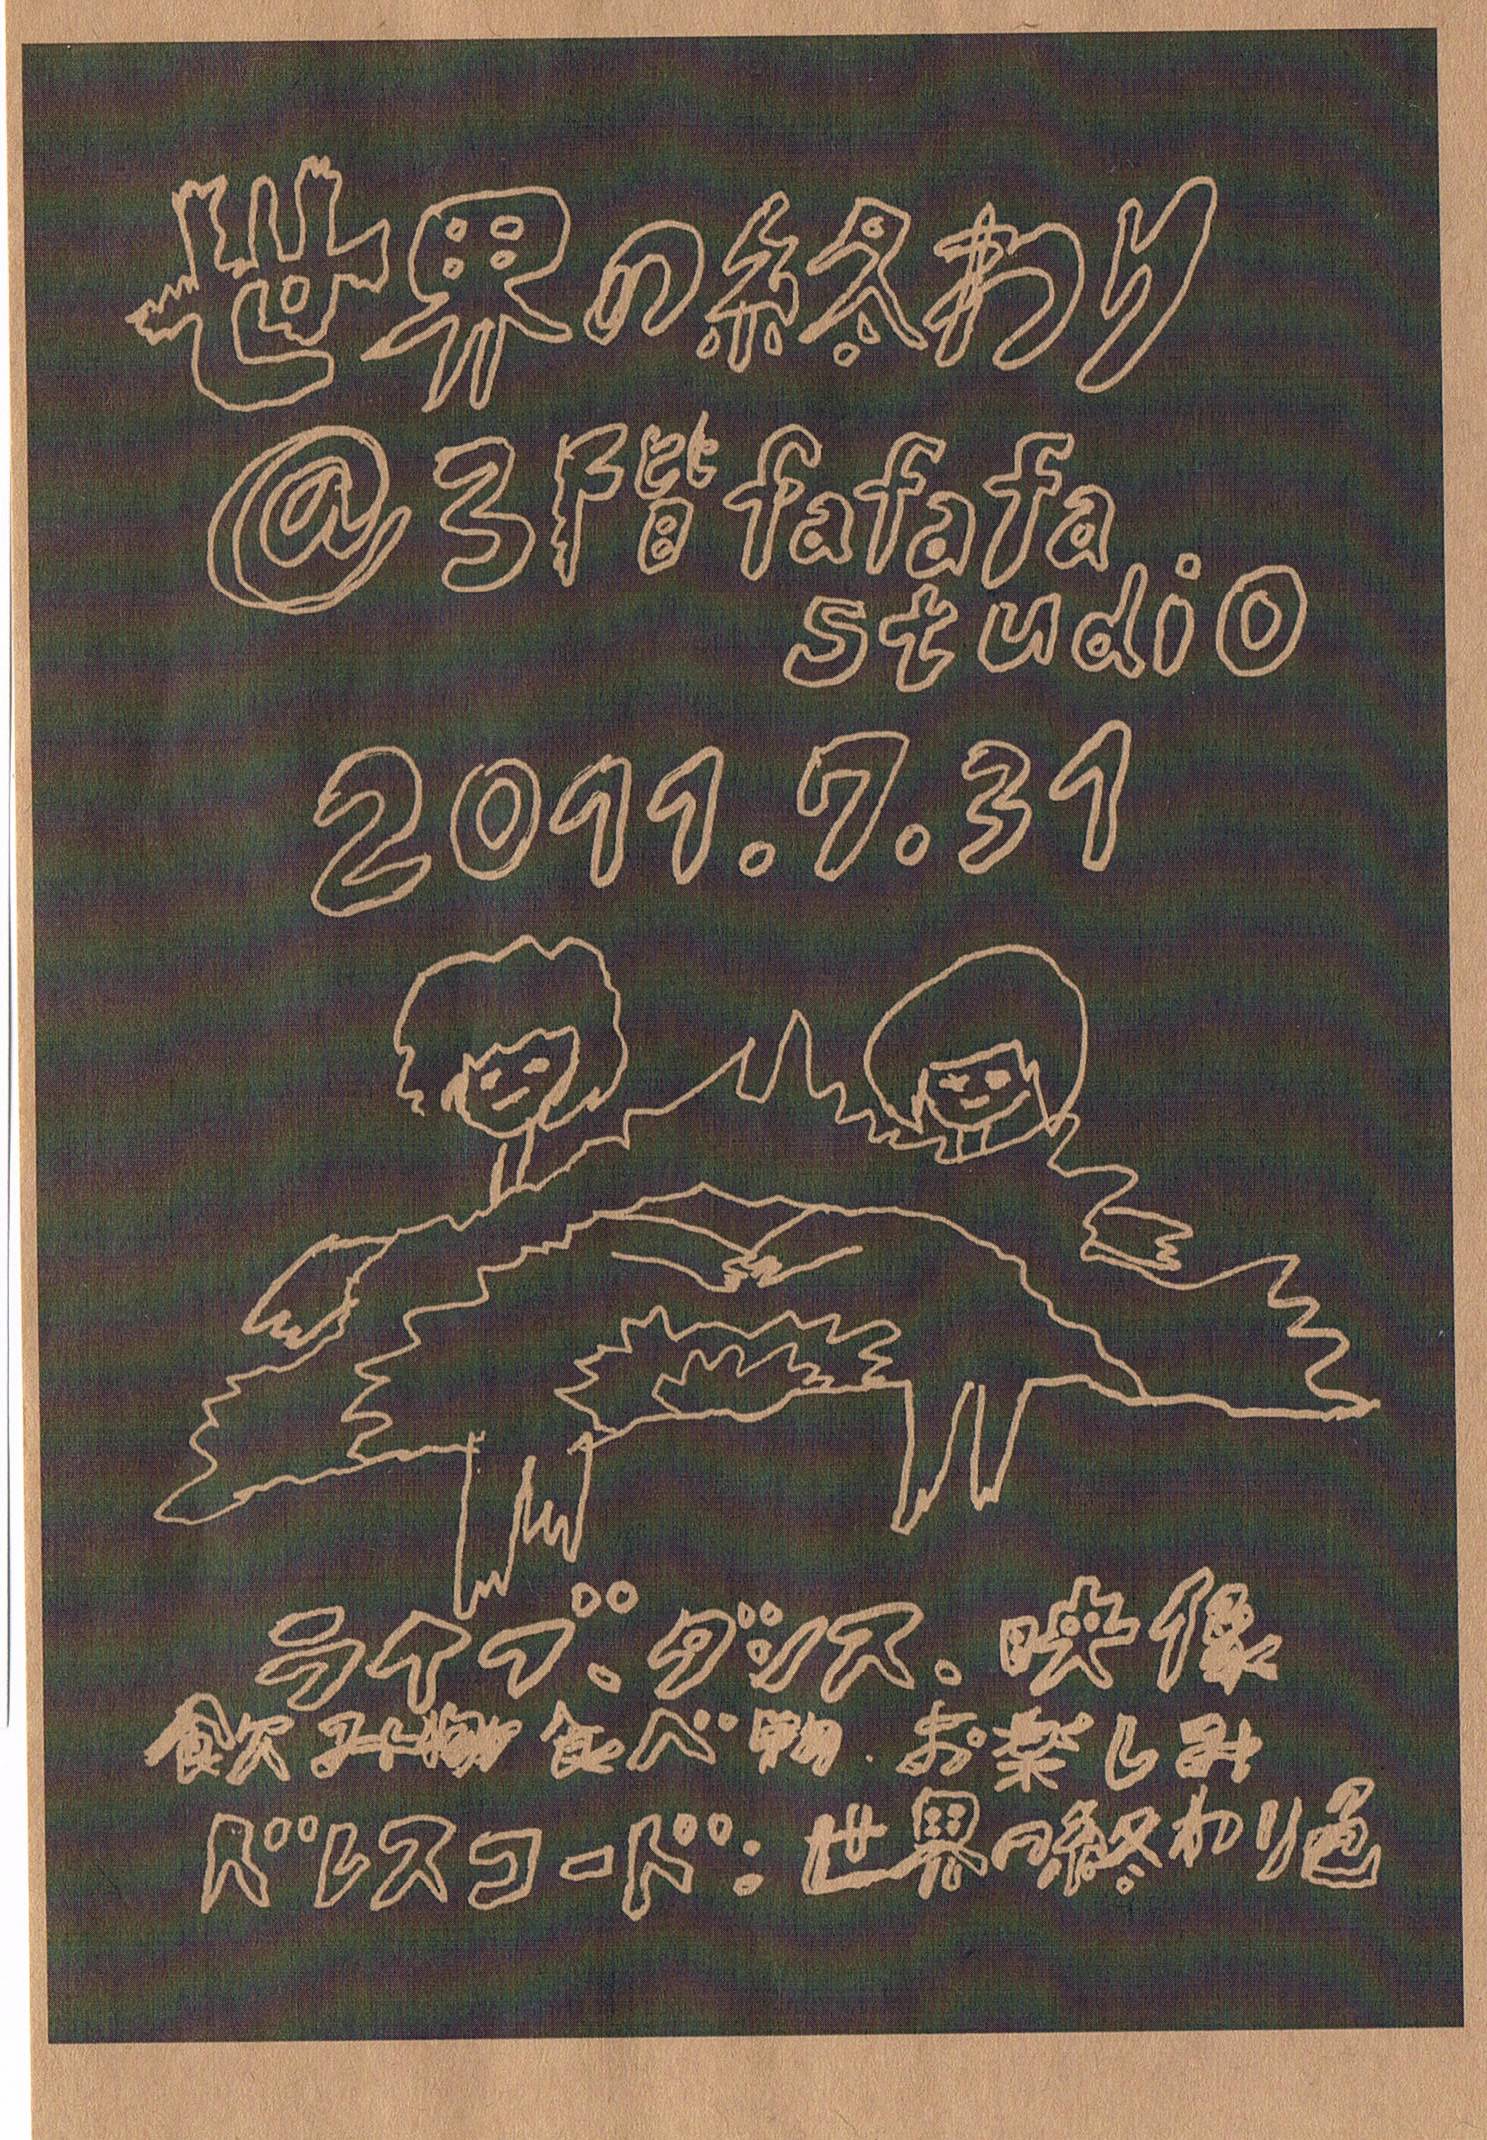 世界の終わり
@3階fafafa
studio
2011.7.31
ライブ、ダンス、映像
飲み物 食べ物、お楽しみ
ドレスコード:世界の終わり色